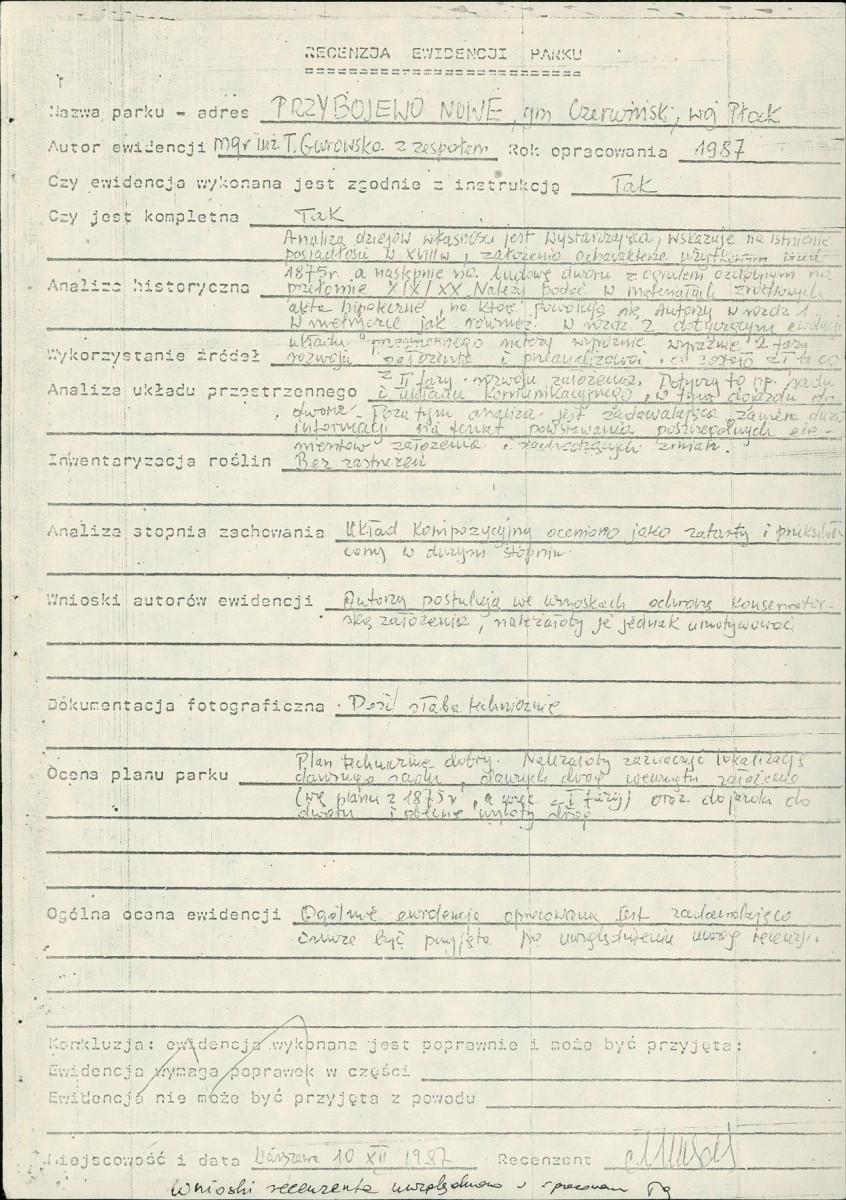 RECENZJA EWIDENCJI PARKU
Nazwa parku - adres PRZYBOJEWO NOWE, gm Czerwińsk, woj Płock
Autor ewidencji mgr inż T. Gurowska z zespołem Rok opracowania 1987
Czy ewidencja wykonana jest zgodnie z instrukcją Tak
Czy jest kompletna Tak
Analiza dziejów własności jest wystarczająca, wskazuje na istnienie
posiadłości w XVIII w, założenia o charakterze użytkowym przed
1875 r. a następnie na budowę dworu z ogrodem ozdobnym na
Analiza historyczna przełomie XIX/XX. Należy podać w materiałach źródłowych
akta hipoteczne, na które powołują się Autorzy w rozdz 1.
W rozdz. 2 dotyczącym
Wykorzystanie źródeł układu przestrzennego należy wyróżnić wyraźnie 2 fazy
rozwoju założenia i przeanalizować, co zostało z I a co
z II fazy rozwoju założenia. Dotyczy to np. sadu
Analiza układu przestrzennego i układu komunikacyjnego, w tym dojazdu do
dworu. Poza tym analiza jest zadawalająca, zawiera dużo
informacji na temat powstawania poszczególnych ele-
mentów założenia i zachodzących zmian.
Inwentaryzacja roślin Bez zastrzeżeń
Analiza stopnia zachowania Układ kompozycyjny oceniono jako zatarty i przekształ-
cony w dużym stopniu.
Wnioski autorów ewidencji Autorzy postulują we wnioskach ochronę konserwator-
ską założenia, należałoby je jednak umotywować
Dokumentacja fotograficzna Dość słaba technicznie
Plan technicznie dobry. Należałoby zaznaczyć lokalizację
Ocena planu parku dawnego sadu, dawnych dróg wewnątrz założenia
(wg planu z 1875 r, a więc z I fazy) oraz dojazdu do
dworu i obecne wyloty dróg
Ogólna ocena ewidencji Ogólnie ewidencja opracowana jest zadawalająco
i może być przyjęta po uwzględnieniu uwag recenzji.
Konkluzja: ewidencja wykonana jest poprawnie i może być przyjęta:
Ewidencja wymaga poprawek w części
Ewidencja nie może być przyjęta z powodu
Miejscowość i data Warszawa 10 XII 1987 Recenzent
Wnioski recenzenta uwzględniono w opracowaniu